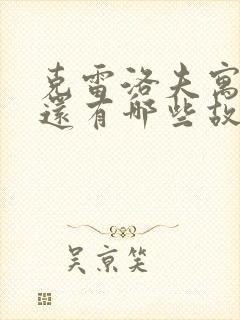 克雷洛夫寓
還有哪些故
吴京笑